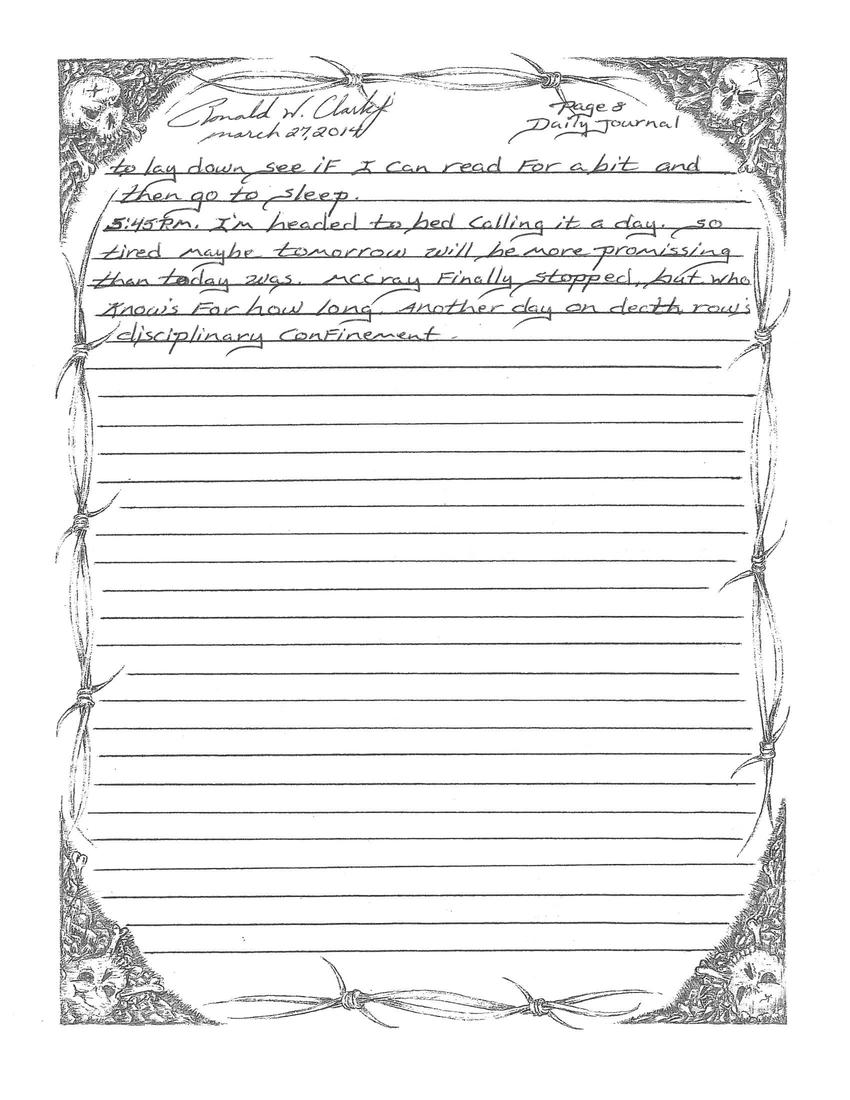 Ronald W. Clark Jr
march 27, 2014
Page 8
Daily Journal
to lay down see if I can read for a bit and
then go to sleep.
5:45 PM. I'm headed to bed calling it a day. so
tired maybe tomorrow will be more promissing
than today was. McCray Finally stopped, but who
Know's For how long. Another day on death row's
disciplinary confinement.